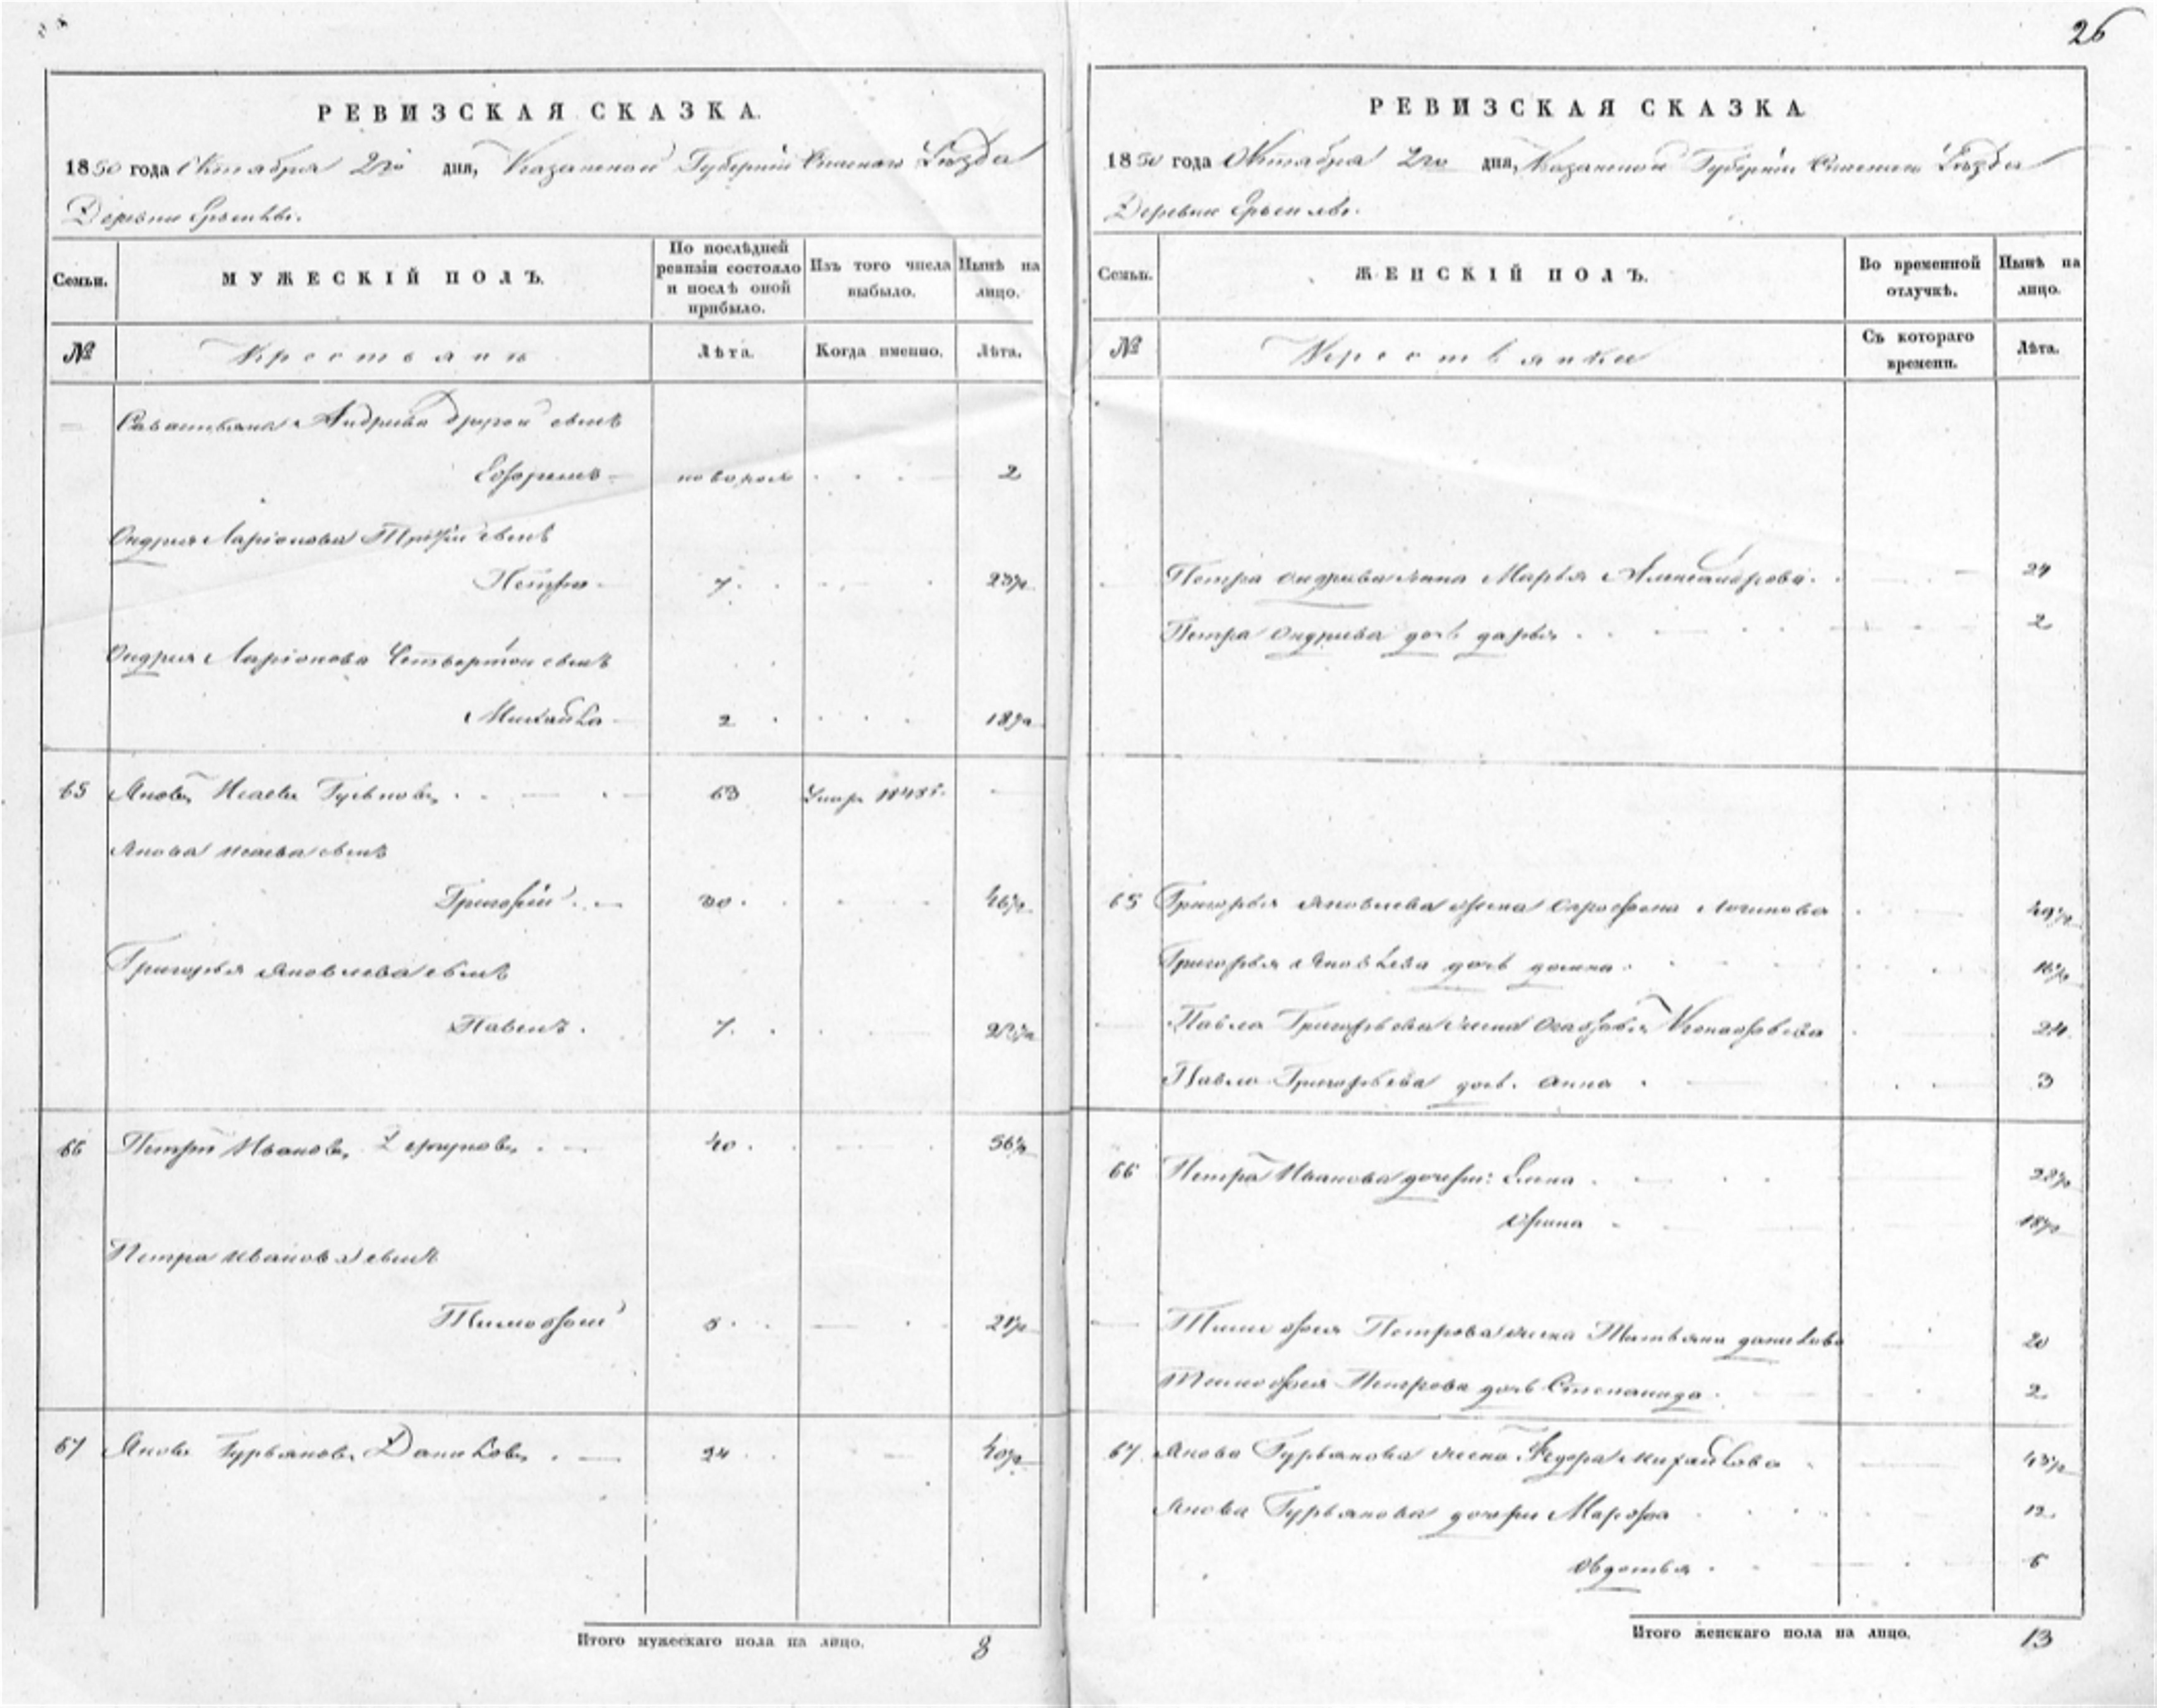 26
РЕВИЗСКАЯ СКАЗКА.
1850 года Октября 2го дня, Казанской Губернии Спаскаго Уѣзда
Деревни
Семьи.
МУЖЕСКІЙ ПОЛЪ.
По послѣдней ревизіи состояло и послѣ оной прибыло.
Изъ того числа выбыло.
Нынѣ на лицо.
№
Крестьяне
Лѣта.
Когда именно.
Лѣта.
Савастьяна Андриева другой сынъ
Ефримъ 2
Ондрея Ларіонова Третій сынъ
Петръ 7 23½
Ондрея Ларіонова Четвертой сынъ
Михайла 2 18½
65 Яковъ Исаевъ 63 Умер 1848г.
Якова Исаева сынъ
Григорій 30 46½
Григорья Яковлева сынъ
Павелъ 7 23½
66 Петръ Ивановъ 40 56½
Петра Иванова сынъ
Тимофей 5 21½
67 Яковъ Гурьяновъ Даниловъ 24 40½
Итого мужескаго пола на лицо. 8
РЕВИЗСКАЯ СКАЗКА
1850 года Октября 2го дня, Казанской Губернии Спаскаго Уѣзда
Деревни
Семьи.
ЖЕНСКІЙ ПОЛЪ.
Во временной отлучкѣ.
Нынѣ на лицо.
№
Крестьянки
Съ котораго времени.
Лѣта.
Петра Ондриева жена Марья Александрова 24
Петра Ондриева дочь Дарья 2
65 Григорья Яковлева жена Офросена Логинова 49½
Григорья Яковлева дочь Домна 16½
Павла Григорьева жена 24
Павла Григорьева дочь Анна 3
66 Петра Иванова дочери: Елена 22½
Орина 18½
Тимофея Петрова жена Татьяна Данилова 20
Тимофея Петрова дочь Степанида 2
67 Якова Гурьянова жена Федора Михайлова 43½
Якова Гурьянова дочери Марфа 12
Овдотья 6
Итого женскаго пола на лицо. 13